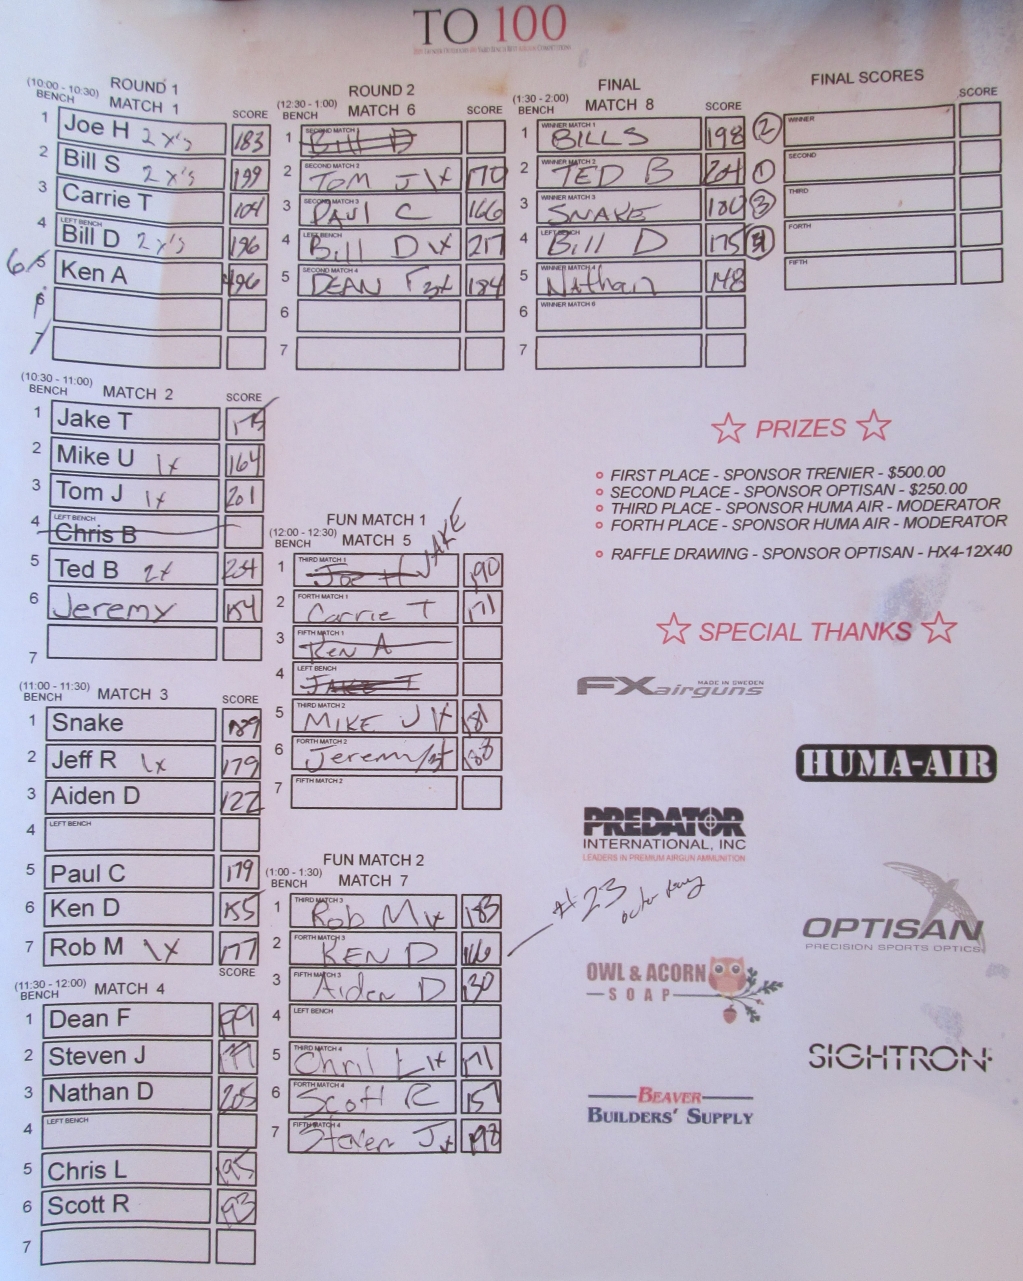 TO 100
(10:00 - 10:30) ROUND 1
BENCH MATCH 1 SCORE
1 Joe H 2 x's 183
2 Bill S 2 x's 199
3 Carrie T 104
4 LEFT BENCH Bill D 2 x's 196
5 Ken A
6
7
(10:30 - 11:00)
BENCH MATCH 2 SCORE
1 Jake T
2 Mike U 1x 164
3 Tom J 1x 201
4 LEFT BENCH Chris B
5 Ted B 2x 204
6 Jeremy 154
7
(11:00 - 11:30)
BENCH MATCH 3 SCORE
1 Snake 189
2 Jeff R 1x 179
3 Aiden D 122
4 LEFT BENCH
5 Paul C 179
6 Ken D 155
7 Rob M 1x 177
SCORE
(11:30 - 12:00)
BENCH MATCH 4
1 Dean F 199
2 Steven J
3 Nathan D 205
4 LEFT BENCH
5 Chris L 195
6 Scott R 193
7
(12:30 - 1:00) ROUND 2
BENCH MATCH 6 SCORE
1 SECOND MATCH 1 Bill D
2 SECOND MATCH 2 TOM J 1x 170
3 SECOND MATCH 3 PAUL C 166
4 LEFT BENCH Bill D 1x 217
5 SECOND MATCH 4 DEAN F 3x 184
6
7
FUN MATCH 1
(12:00 - 12:30)
BENCH MATCH 5
1 THIRD MATCH 1 Joe H JAKE 190
2 FORTH MATCH 1 Carrie T 171
3 FIFTH MATCH 1 Ken A
4 LEFT BENCH JAKE T
5 THIRD MATCH 2 MIKE U 1x 181
6 FORTH MATCH 2 Jeremy 188
7 FIFTH MATCH 2
FUN MATCH 2
(1:00 - 1:30)
BENCH MATCH 7
1 THIRD MATCH 3 Rob M 1x 183
2 FORTH MATCH 3 KEN D 166
3 FIFTH MATCH 3 Aiden D 130
4 LEFT BENCH
5 THIRD MATCH 4 Chris L 1x 171
6 FORTH MATCH 4 Scott R 151
7 FIFTH MATCH 4 Steven J 1x 198
#23 outer ring
FINAL
(1:30 - 2:00)
BENCH MATCH 8 SCORE
1 WINNER MATCH 1 BILL S 198 2
2 WINNER MATCH 2 TED B 204 1
3 WINNER MATCH 3 SNAKE 180 3
4 LEFT BENCH Bill D 175 4
5 WINNER MATCH 4 Nathan 148
6 WINNER MATCH 6
7
FINAL SCORES
SCORE
WINNER
SECOND
THIRD
FORTH
FIFTH
PRIZES
FIRST PLACE - SPONSOR TRENIER - $500.00
SECOND PLACE - SPONSOR OPTISAN - $250.00
THIRD PLACE - SPONSOR HUMA AIR - MODERATOR
FORTH PLACE - SPONSOR HUMA AIR - MODERATOR
RAFFLE DRAWING - SPONSOR OPTISAN - HX4-12X40
SPECIAL THANKS
MADE IN SWEDEN
FX airguns
HUMA-AIR
PREDATOR
INTERNATIONAL, INC
LEADERS IN PREMIUM AIRGUN AMMUNITION
OPTISAN
PRECISION SPORTS OPTICS
OWL & ACORN
SOAP
SIGHTRON
BEAVER
BUILDERS' SUPPLY